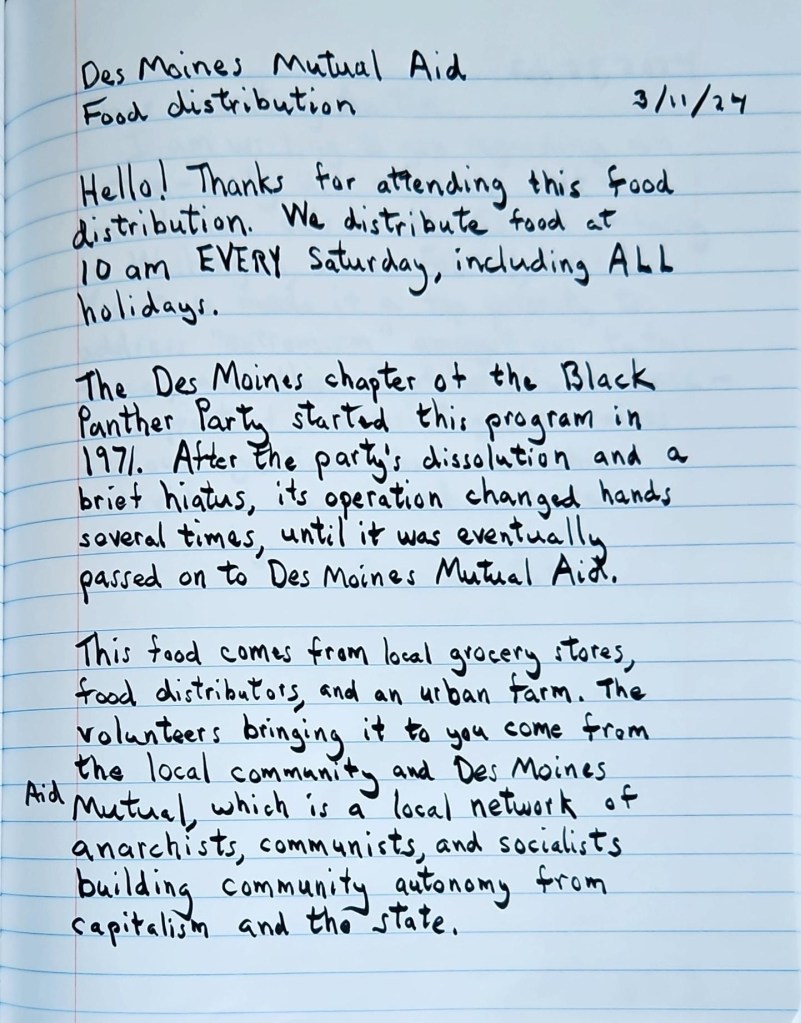 Des Moines Mutual Aid
Food distribution 3/11/24
Hello! Thanks for attending this food
distribution. We distribute food at
10 am EVERY Saturday, including ALL
holidays.
The Des Moines chapter of the Black
Panther Party started this program in
1971. After the party's dissolution and a
brief hiatus, its operation changed hands
several times, until it was eventually
passed on to Des Moines Mutual Aid.
This food comes from local grocery stores,
food distributors, and an urban farm. The
volunteers bringing it to you come from
the local community and Des Moines
Aid Mutual, which is a local network of
anarchists, communists, and socialists
building community autonomy from
capitalism and the state.